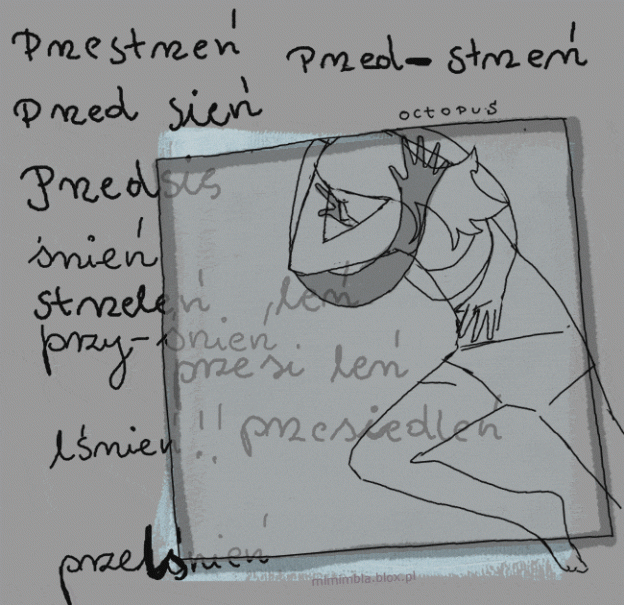 Przestrzeń
Przed-strzeń
Przed sień
OCTOPUS
Przedsię
śnień
strzeleń, leń
przy-śnień
przesi leń
lśnień!! przesiedleń
przelśnień
mimimbla.blox.pl